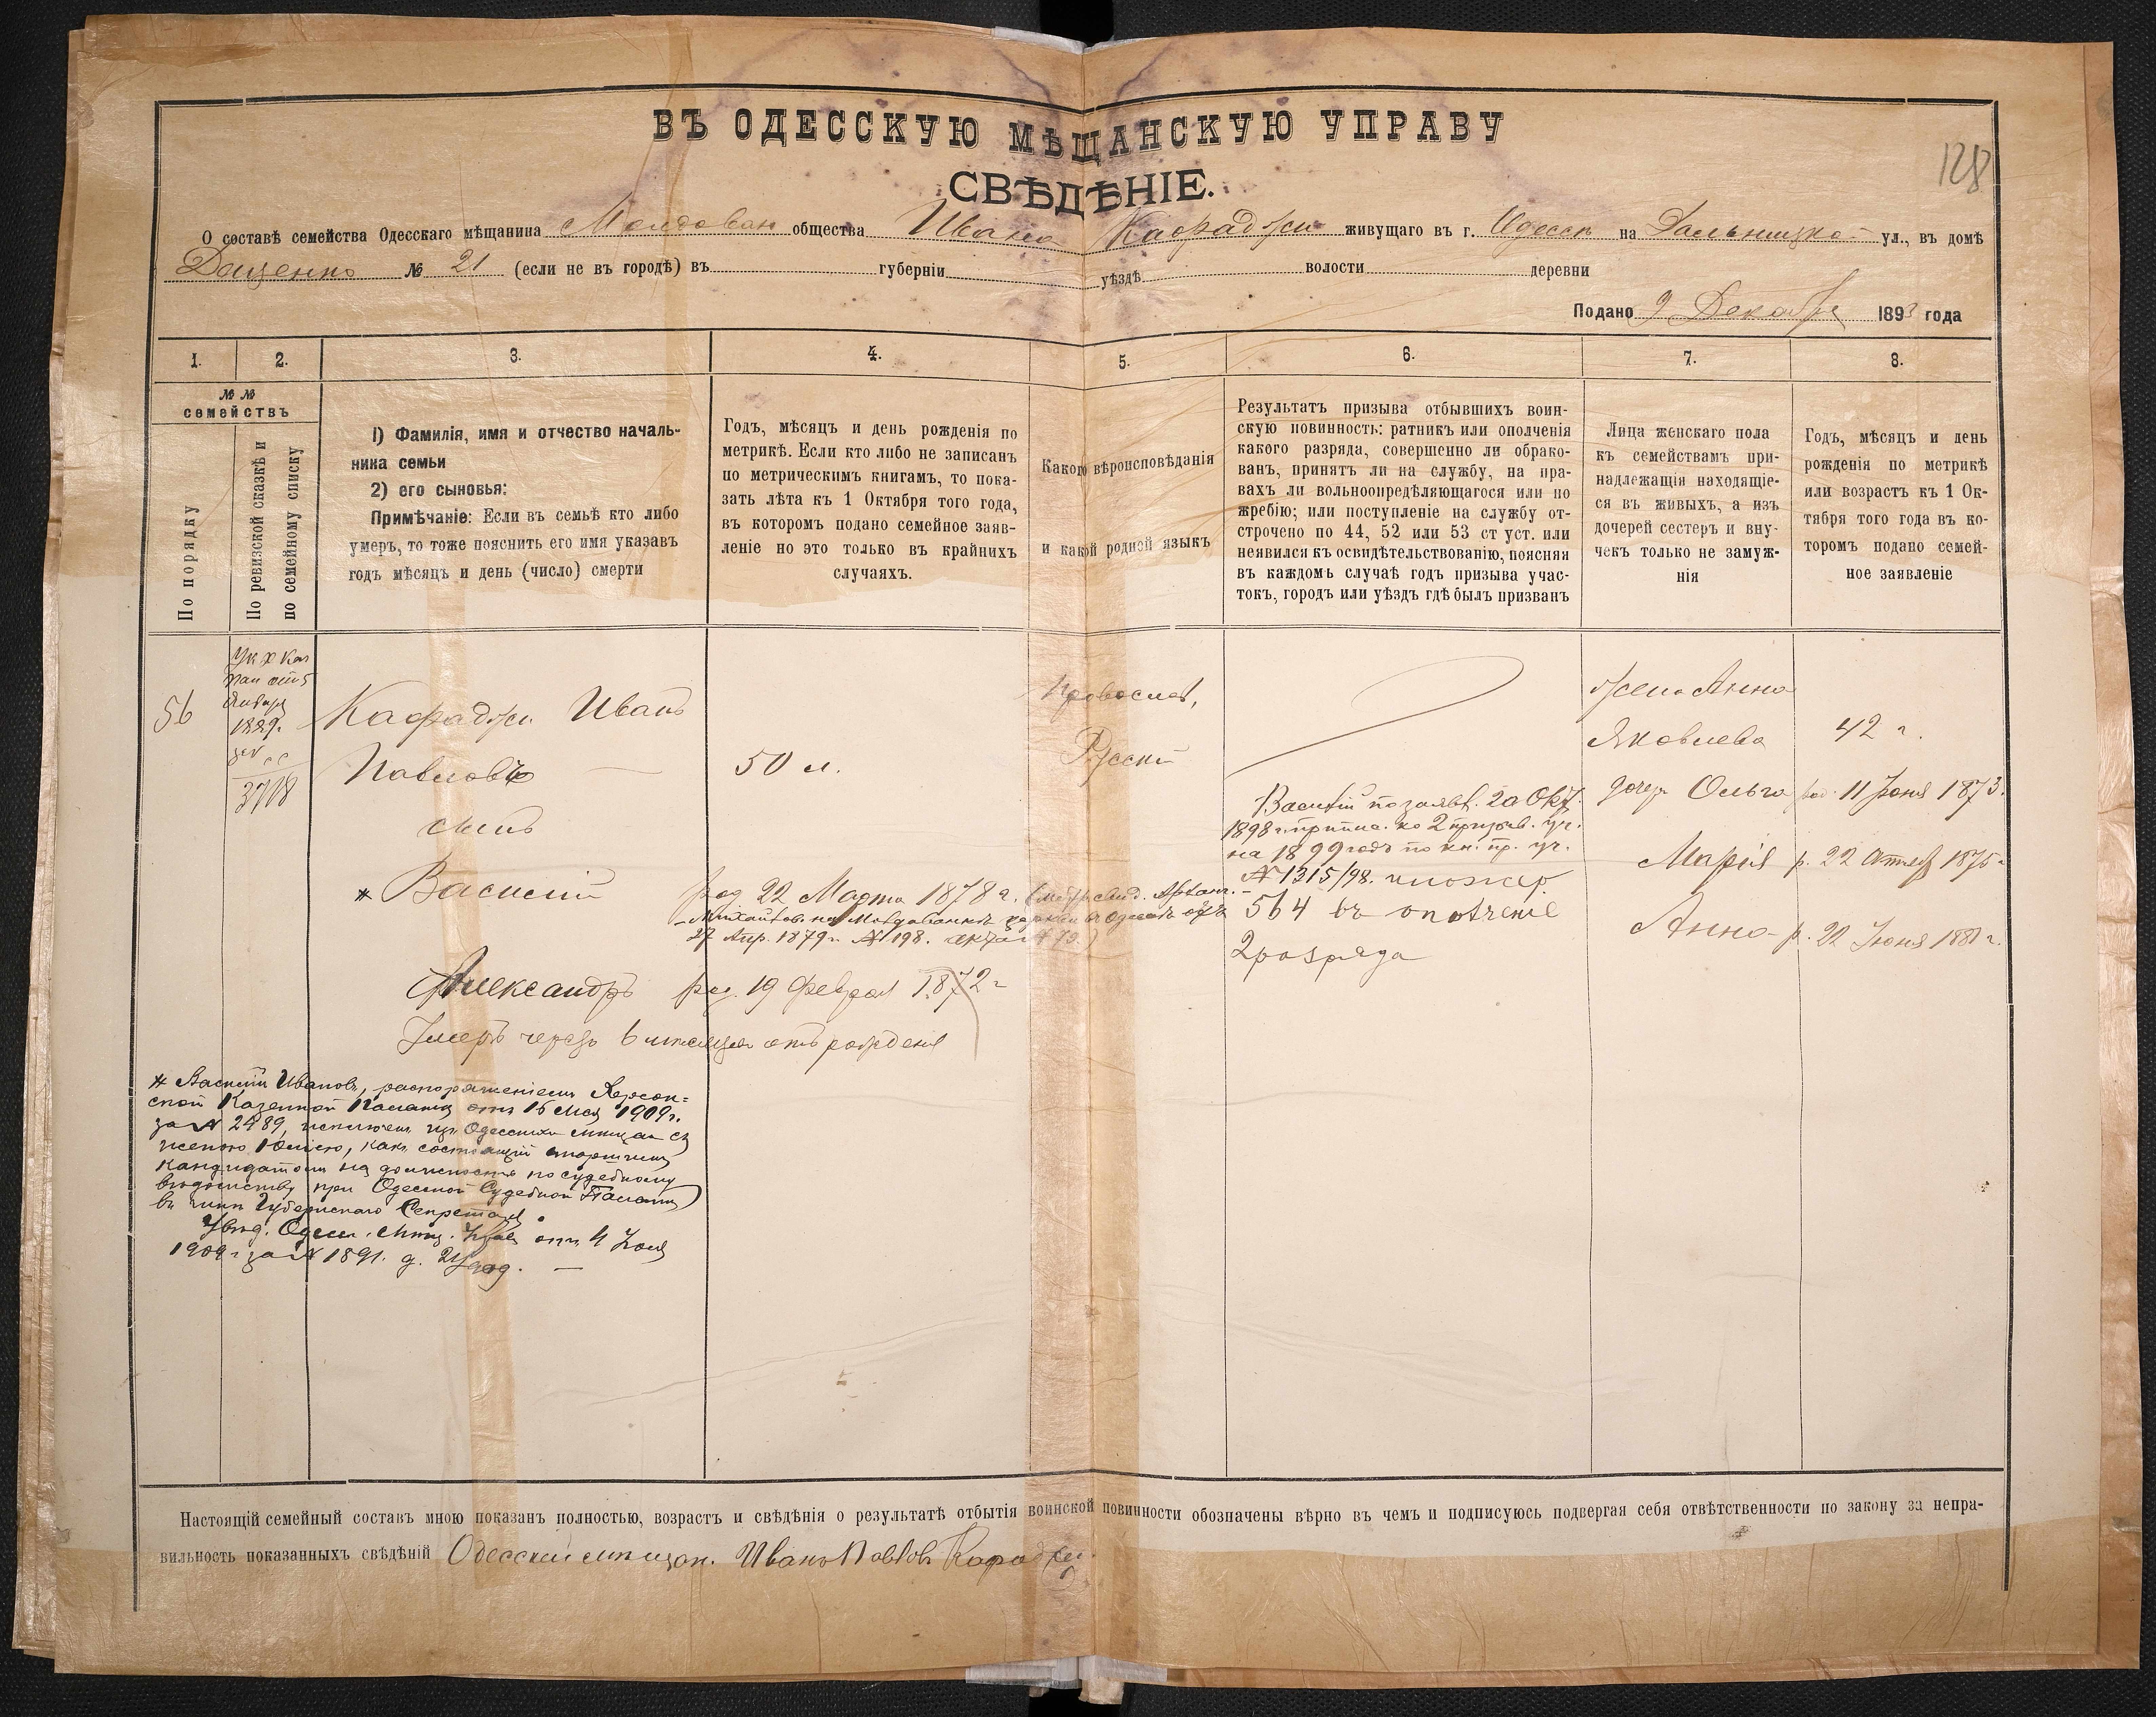 ВЪ ОДЕССКУЮ МѢЩАНСКУЮ УПРАВУ
СВѢДѢНІЕ.
128
О составѣ семейства Одесскаго мѣщанина Молдаван общества Ивана Кафаджи живущаго въ г. Одессѣ на Дальницкой ул., въ домѣ
Даценко № 21 (если не въ городѣ) въ губерніи уѣздѣ волости деревни
Подано 9 Декабря 1893 года
1. 2. 3. 4. 5. 6. 7. 8.
№ №
семействъ
По порядку
По ревизской сказкѣ и
по семейному списку
1) Фамилія, имя и отчество началь-
ника семьи
2) его сыновья:
Примѣчаніе: Если въ семьѣ кто либо
умеръ, то тоже пояснить его имя указавъ
годъ мѣсяцъ и день (число) смерти
Годъ, мѣсяцъ и день рожденія по
метрикѣ. Если кто либо не записанъ
по метрическимъ книгамъ, то пока-
зать лѣта къ 1 Октября того года,
въ которомъ подано семейное заяв-
леніе но это только въ крайнихъ
случаяхъ.
Какого вѣроисповѣданія
и какой родной языкъ
Результатъ призыва отбывшихъ воин-
скую повинность: ратникъ или ополченія
какого разряда, совершенно ли обрако-
ванъ, принятъ ли на службу, на пра-
вахъ ли вольноопредѣляющагося или по
жребію; или поступленіе на службу от-
строчено по 44, 52 или 53 ст уст. или
неявился къ освидѣтельствованію, поясняя
въ каждомъ случаѣ годъ призыва учас-
токъ, городъ или уѣздъ гдѣ былъ призванъ
Лица женскаго пола
къ семействамъ при-
надлежащія находящіе-
ся въ живыхъ, а изъ
дочерей сестеръ и вну-
чекъ только не замуж-
нія
Годъ, мѣсяцъ и день
рожденія по метрикѣ
или возрастъ къ 1 Ок-
тября того года въ ко-
торомъ подано семей-
ное заявленіе
56
Ук Х Каз
Пал отъ 5
Января
1889г.
3718
Кафаджи Иванъ
Павловъ
50 л.
Православ,
Русскій
жена Анна
Яковлева
42 г.
сынъ
* Василій
род 22 Марта 1878 г. (метр. свид. Архан.-
Михайлов. на Молдаванкѣ церкви въ Одессѣ отъ
27 Апр. 1879 г. № 198.
Александръ род. 19 Февраля 1872 г
Умеръ черезъ 6 мѣсяцевъ отъ рожденія
Василій по заявл. 20 Окт.
1898 г. припис. ко 2 призыв. уч.
на 1899 годъ по кн. пр. уч.
№ 1315/98. по жер.
564 въ ополченіе
2 разряда
дочери Ольга род. 11 Іюня 1873.
Марія р. 22 1875 г
Анна р. 22 Іюня 1881 г.
* Василій Ивановъ, распоряженіемъ Херсон=
ской Казенной Палаты отъ 16 Мая 1909 г.
за № 2489, исключенъ изъ Одесскихъ мѣщанъ съ
женою Юліею, какъ состоящій старшимъ
кандидатомъ на должности по судебному
вѣдомству при Одесской Судебной Палатѣ
въ чинѣ Губернскаго Секретаря
Увѣд. Одесс. Мѣщ. Упр. отъ 4 Іюля
1909 г за № 1891.
Настоящій семейный составъ мною показанъ полностью, возрастъ и свѣдѣнія о результатѣ отбытія воинской повинности обозначены вѣрно въ чемъ и подписуюсь подвергая себя отвѣтственности по закону за непра-
вильность показанныхъ свѣдѣній Одесскій мѣщан. Иванъ Павловъ Кафаджи.